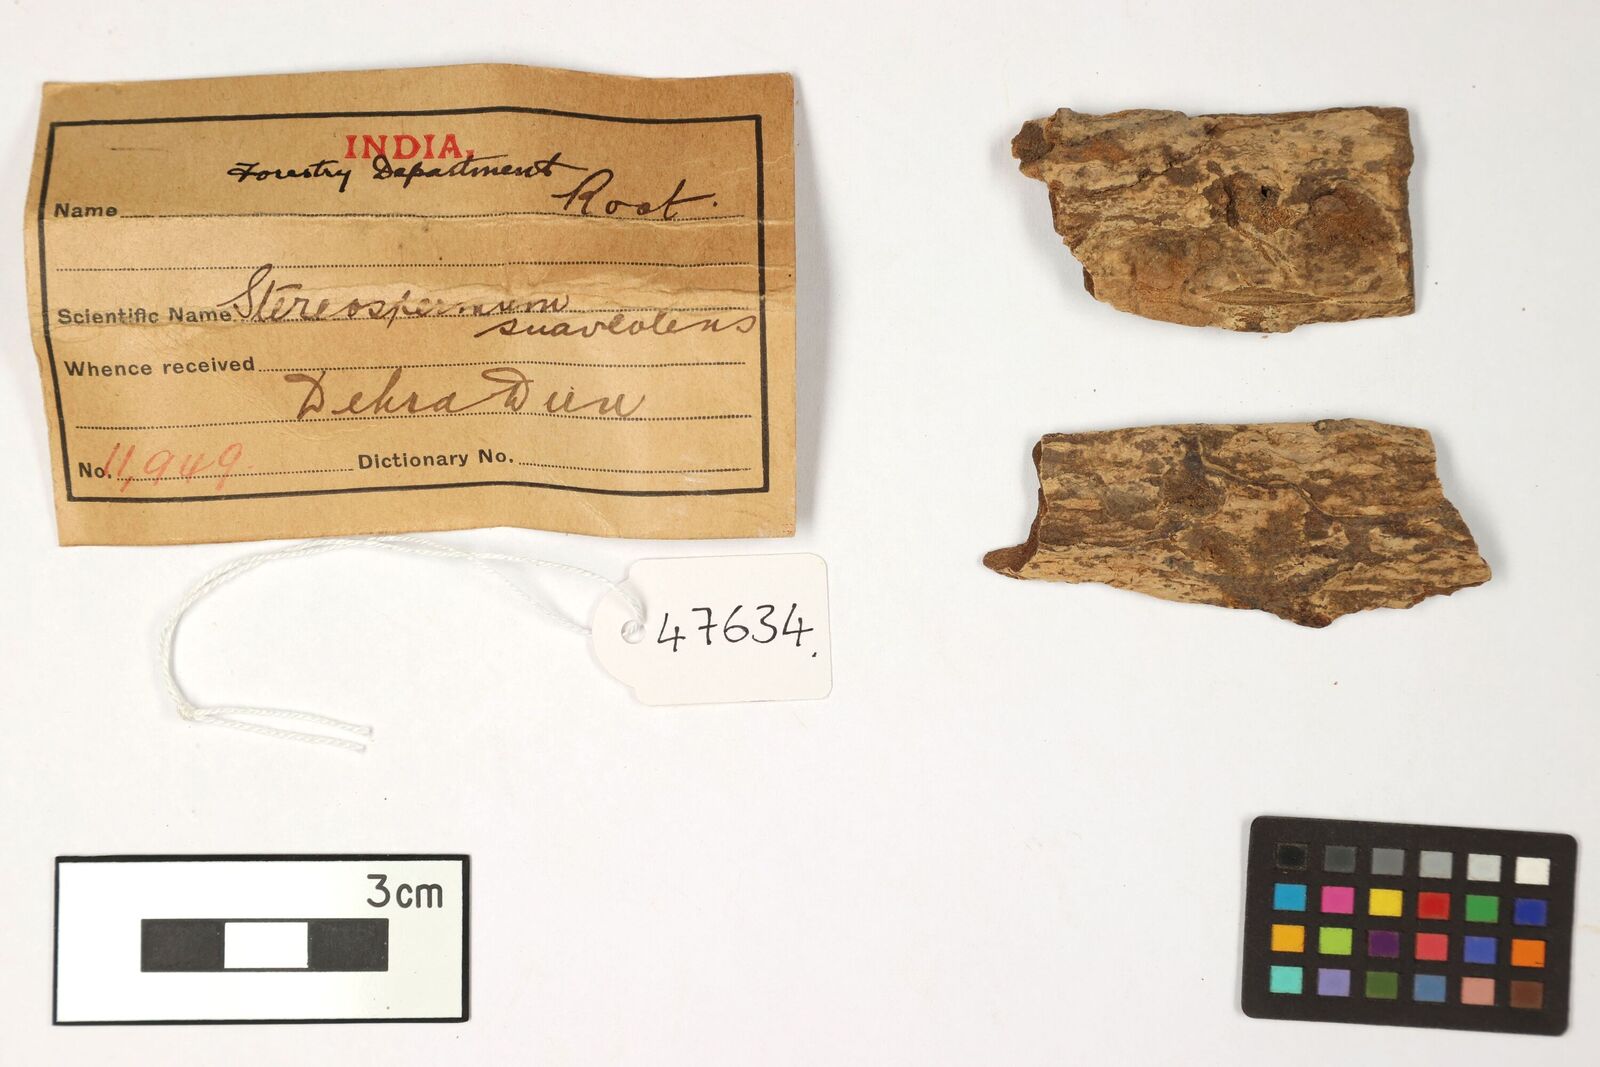 INDIA.
Forestry Department
Name Root.
Scientific Name Stereospermum
suaveolens
Whence received
Dehra Dun
No. 11,949. Dictionary No.
47634.
3cm